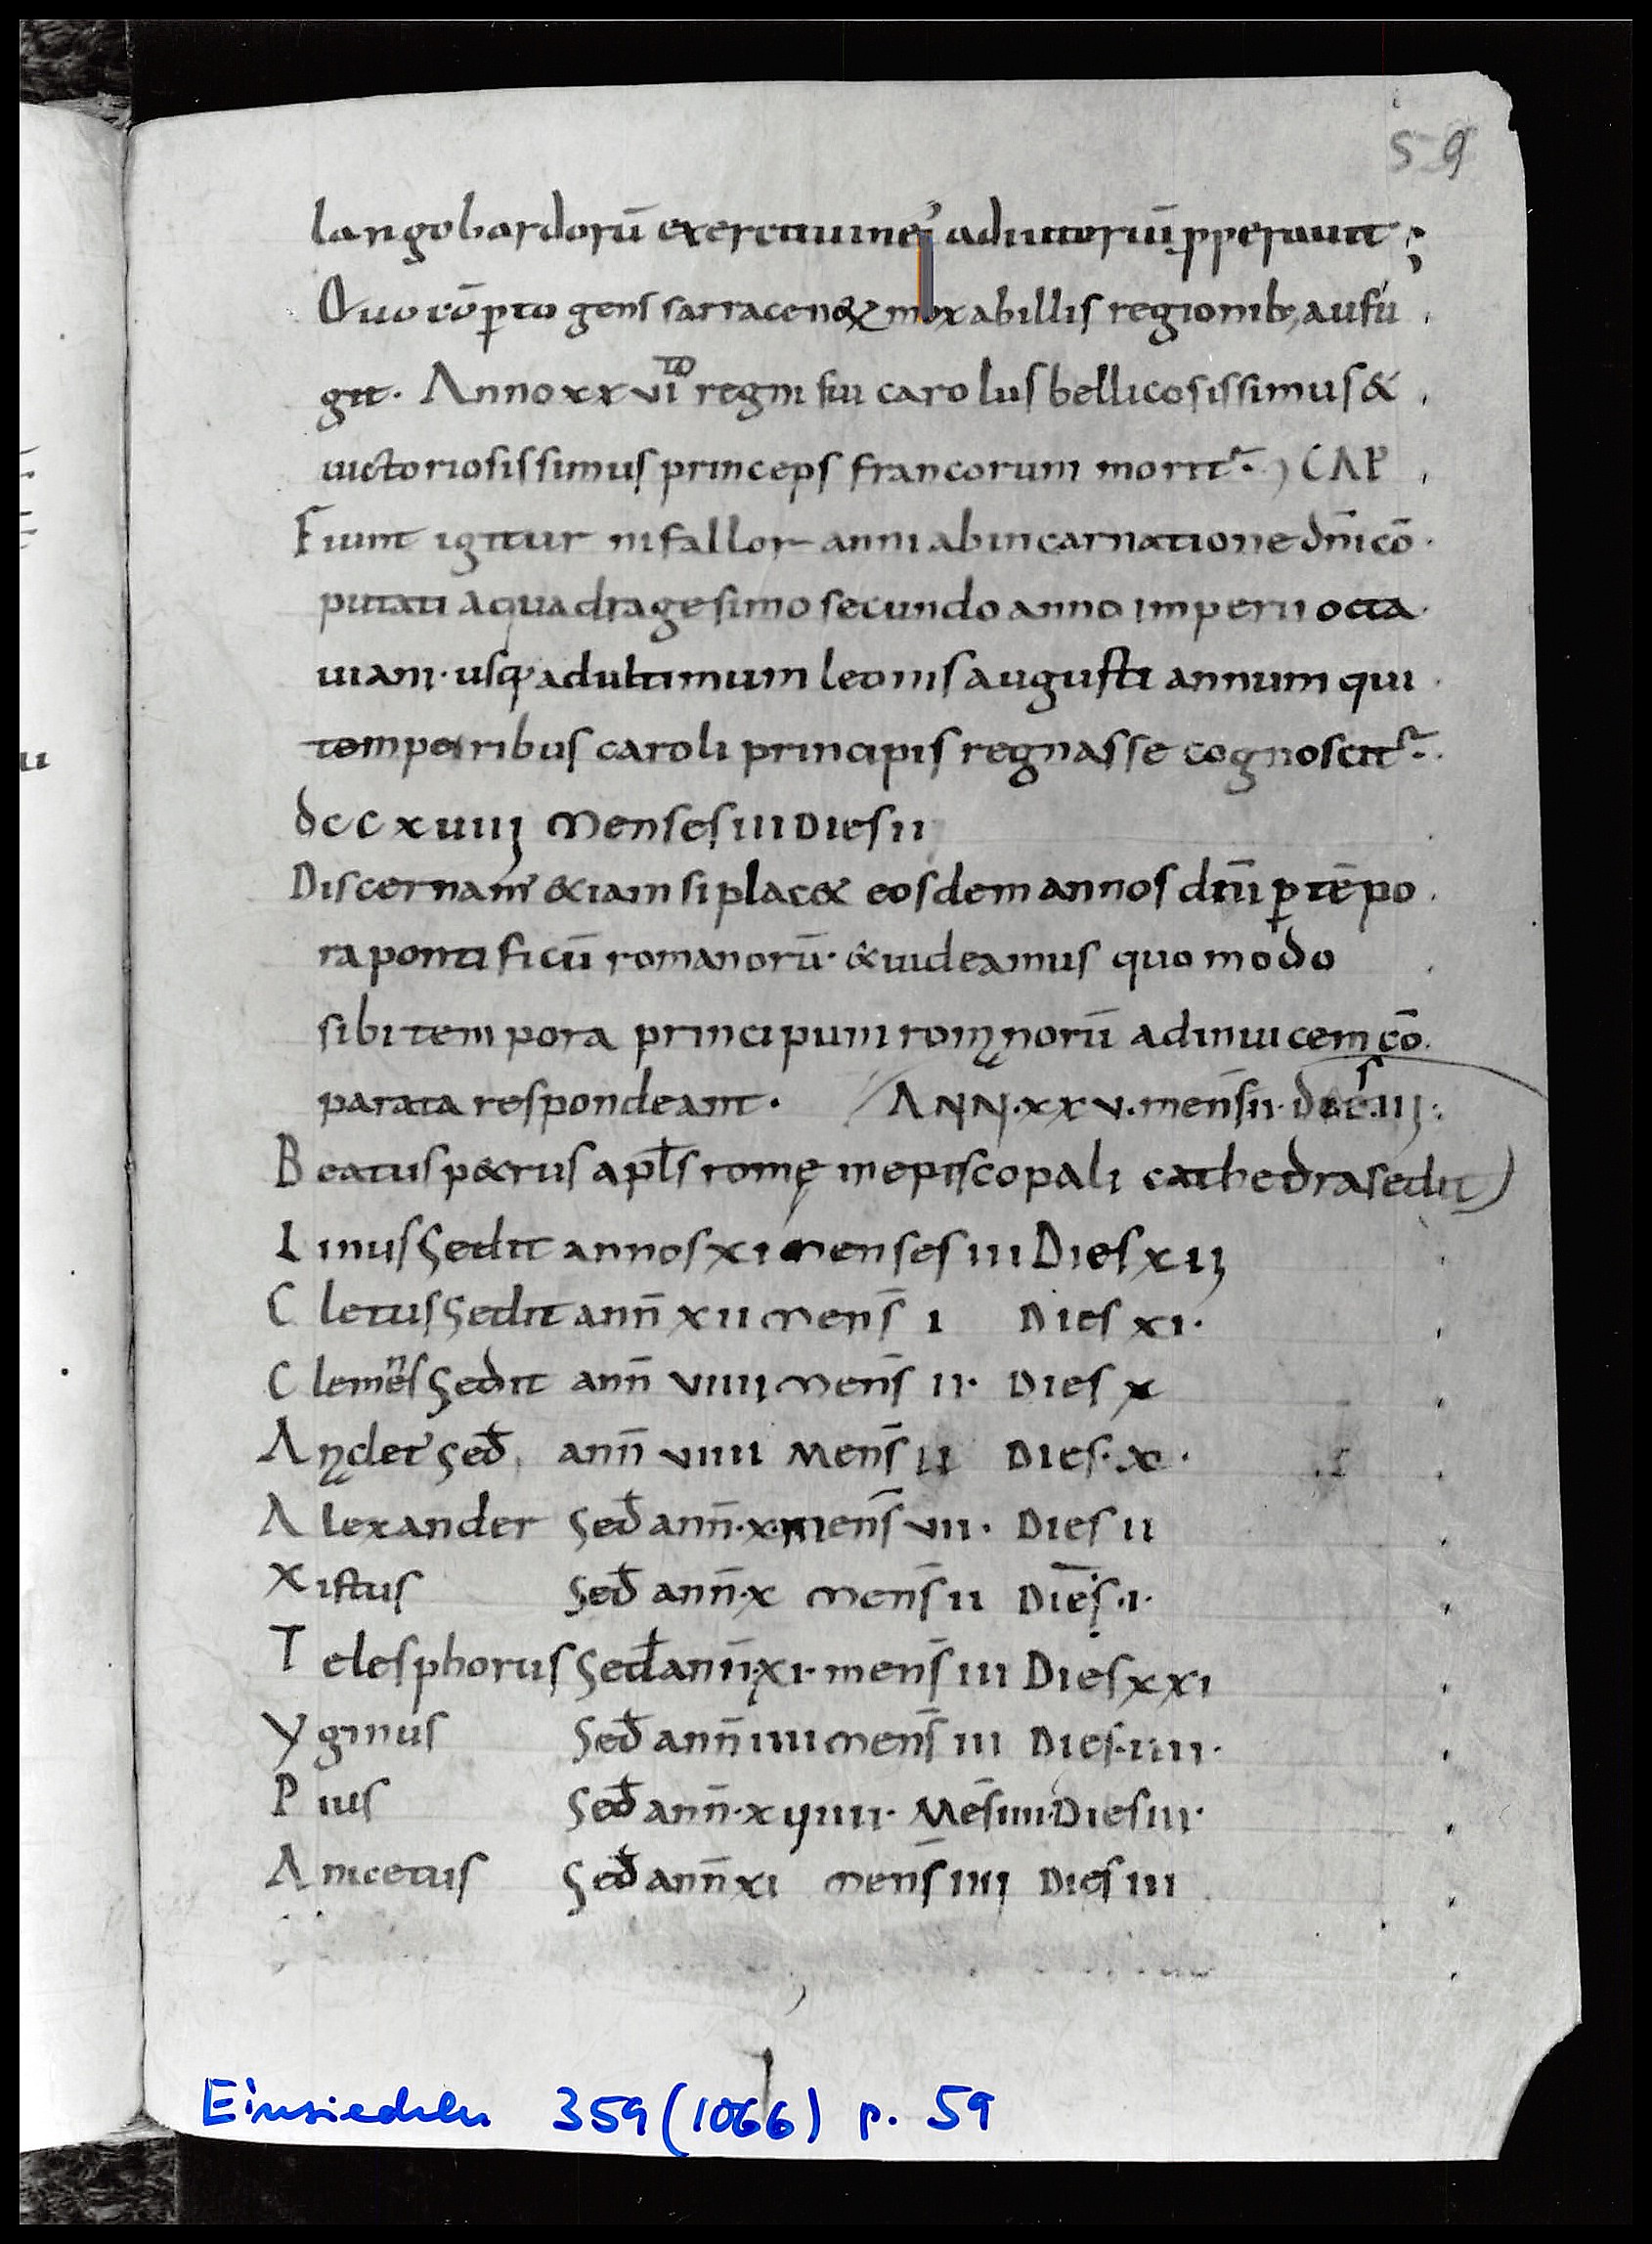 59
langobardorū exercitu in ei' adiutoriū pperauit;
Quo cōpto gens sarracenoꝝ mox ab illis regionib; aufu
git. Anno xxvi to regni sui carolus bellicosissimus &
uictoriosissimus princeps francorum morit᷑. CAP
Fiunt igitur ni fallor anni ab incarnatione dn̄i cō
putati a quadragesimo secundo anno imperii octa
uiani. usq; ad ultimum leonis augusti annum qui
temporibus caroli principis regnasse cognoscit᷑.
dccxuiiij Menses iii Dies ii
Discernam' &iam si plac& eosdem annos dn̄i ꝑ tēpo
ra pontificū romanorū. & uideamus quomodo
sibi tempora principum romanorū ad inuicem cō
parata respondeant. ANN. xxv. men̄s ii. dies. iij.
Beatus p&rus apl̄s romę in episcopali cathedra sedit
Linus Sedit annos xi Menses iii Dies xij
Cletus Sedit ann̄ xii Men̄s i Dies xi.
Clemens Sedit ann̄ viiij Men̄s ii. Dies x
Ancler' Sed̄ ann̄ viiii Men̄s ii Dies. x.
Alexander Sed̄ ann̄. x. men̄s vii. Dies ii
Xistus Sed̄ ann̄. x Men̄s ii Diēs. i.
Telesphorus Sed̄ ann̄. xi. men̄s iii Dies xxi
Yginus Sed̄ ann̄ iiii Men̄s iii Dies. iiii.
Pius Sed̄ ann̄. xuiiii. Mēs iiii. Dies iii.
Anicetus Sed̄ ann̄ xi Men̄s iiij Dies iii
Einsiedeln 359 (1066) p. 59